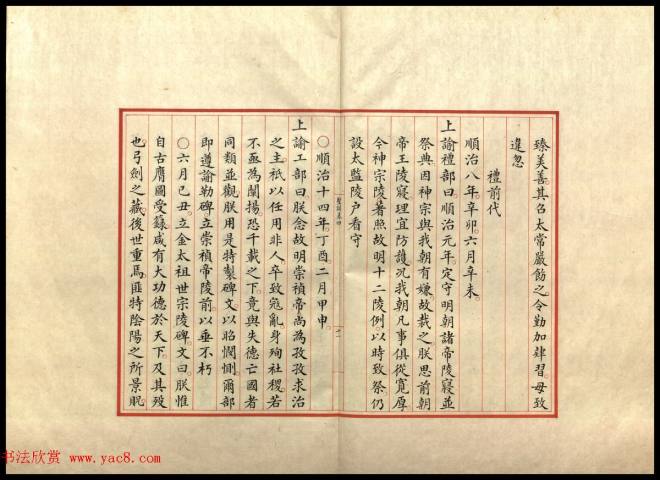 臻美善其召太常嚴飭之令勤加肄習毋致
違忽
禮前代
順治八年辛卯六月辛未
上諭禮部曰順治元年定守明朝諸帝陵寢並
祭典因神宗與我朝有嫌故裁之朕思前朝
帝王陵寢理宜防護況我朝凡事俱從寬厚
今神宗陵著照故明十二陵例以時致祭仍
設太監陵戶看守
〇順治十四年丁酉二月甲申
上諭工部曰朕念故明崇禎帝尚為孜孜求治
之主祇以任用非人卒致寇亂身殉社稷若
不亟為闡揚恐千載之下竟與失德亡國者
同類並觀朕用是特製碑文以昭憫惻爾部
即遵諭勒碑立崇禎帝陵前以垂不朽
〇六月己丑立金太祖世宗陵碑文曰朕惟
自古膺圖受籙咸有大功德於天下及其歿
也弓劍之藏後世重焉匪特陰陽之所景貺
书法欣赏 www.yac8.com